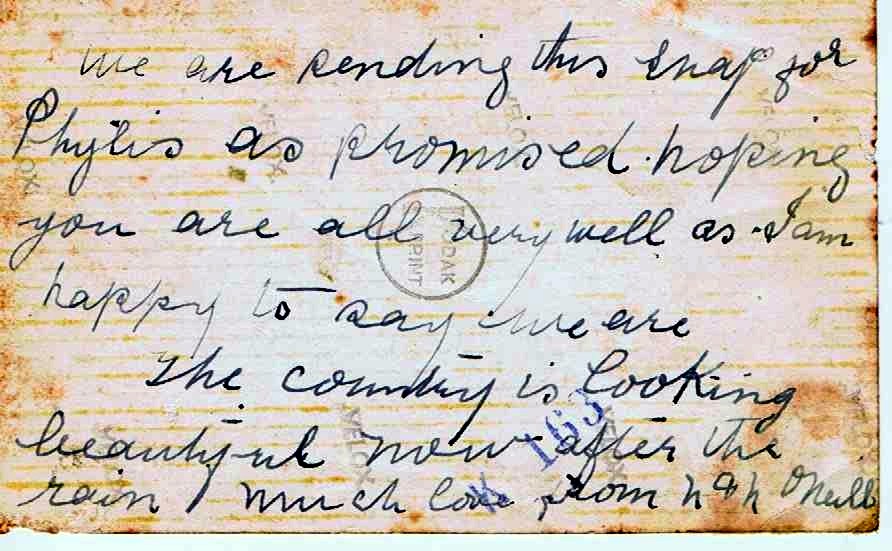 We are sending this snap for
Phylis as promised. hoping
you are all very well as I'am
happy to say we are
The country is looking
beautiful now after the
rain much love from N & N ONeill
KODAK
PRINT
163
VELOX
VELOX
VELOX
VELOX
VELOX